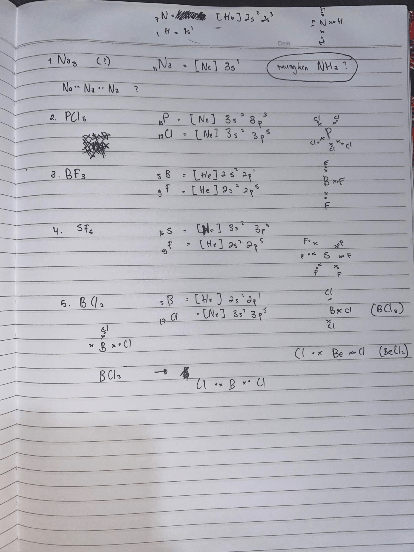 ₇N = [He] 2s² 2s³
₁H = 1s¹
N × H
1. Na₃ (?) ₁₁Na = [Ne] 3s¹ mungkin NH₃ ?
Na ·· Na ·· Na ?
2. PCl₅ ₁₅P = [Ne] 3s² 3p³
₁₇Cl = [Ne] 3s² 3p⁵
P
Cl
3. BF₃ ₅B = [He] 2s² 2p¹
₉F = [He] 2s² 2p⁵
F
B ×· F
F
4. SF₆ ₁₆S = [Ne] 3s² 3p⁵
₉F = [He] 2s² 2p⁵
S
F
5. BCl₂ ₅B = [He] 2s² 2p¹
₁₇Cl = [Ne] 3s² 3p⁵
Cl
B × Cl (BCl₃)
Cl
× B × · Cl
Cl ·× Be ×· Cl (BeCl₂)
BCl₂ → Cl ·× B ×· Cl